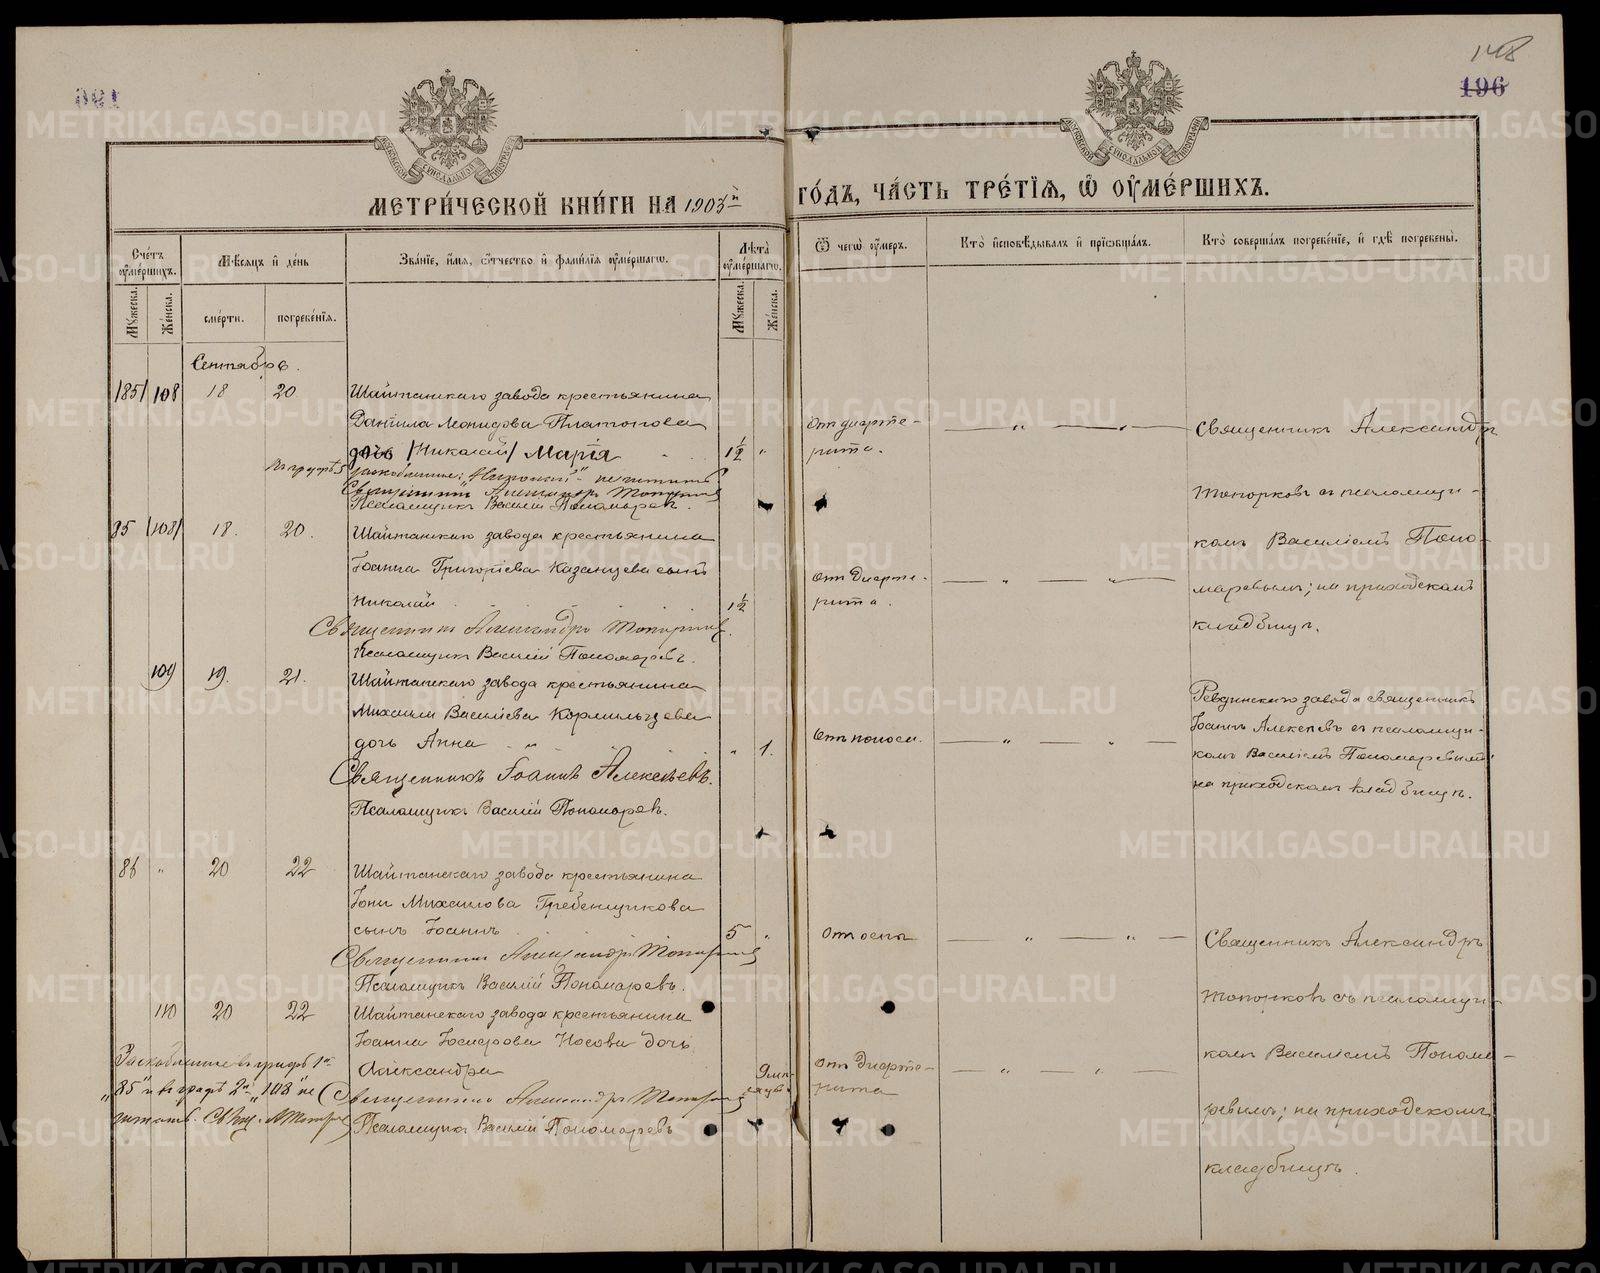 148
196
МЕТРИ́ЧЕСКОЙ КНИ́ГИ НА 1903й ГО́ДЪ, ЧА́СТЬ ТРЕ́ТІѦ, Ѿ ОУ҆МЕ́РШИХЪ.
МОСКОВСКОЙ СѴНОДАЛЬНОЙ ТИПОГРАФІИ
МОСКОВСКОЙ СѴНОДАЛЬНОЙ ТИПОГРАФІИ
Сче́тъ оу҆ме́ршихъ.
Мꙋ́жеска.
Же́нска.
Мѣ́сѧцъ и҆ де́нь
сме́рти.
погребе́нїѧ.
Зва́нїе, и҆́мѧ, ѻ҆́тчество и҆ фами́лїѧ оу҆ме́ршагѡ.
Лѣ́та оу҆ме́ршагѡ.
Мꙋ́жеска.
Же́нска.
Ѿ чегѡ̀ оу҆́меръ.
Кто̀ и҆сповѣ́дывалъ и҆ прїѡбща́лъ.
Кто̀ соверша́лъ погребе́нїе, и҆ гдѣ̀ погребены̀.
Сентябрь.
/85/ 108 18 20
Шайтанскаго завода крестьянина
Даніила Леонидова Платонова
дочь /Николай/ Марія 1½ "
Отъ дифте-
рита.
Священникъ Александръ
Топорковъ съ псаломщи-
комъ Василіемъ Поно-
маревымъ; на приходскомъ
кладбищѣ.
Въ графѣ 5 зачеркнутое: "Николай" не читать
Священникъ Александръ Топорковъ
Псаломщикъ Василій Пономаревъ.
85 /108/ 18. 20.
Шайтанскаго завода крестьянина
Іоанна Григоріева Казанцева сынъ
Николай 1½
Отъ дифте-
рита.
Священникъ Александръ Топорковъ.
Псаломщикъ Василій Пономаревъ.
109 19. 21.
Шайтанскаго завода крестьянина
Михаила Василіева Кормильцева
дочь Анна " 1.
Отъ поноса.
Ревдинскаго завода священникъ
Іоаннъ Алексѣевъ съ псаломщи-
комъ Василіемъ Пономаревымъ
на приходскомъ кладбищѣ.
Священникъ Іоаннъ Алексѣевъ.
Псаломщикъ Василій Пономаревъ.
86 " 20 22
Шайтанскаго завода крестьянина
Іоны Михаилова Гребенщикова
сынъ Іоаннъ 5 "
Отъ оспы
Священникъ Александръ
Топорковъ съ псаломщи-
комъ Василіемъ Понома-
ревымъ; на приходскомъ
кладбищѣ.
Священникъ Александръ Топорковъ
Псаломщикъ Василій Пономаревъ.
110 20 22
Шайтанскаго завода крестьянина
Іоанна Іосифова Носова дочь
Александра 9 мѣ-
сяцевъ
Отъ дифте-
рита
Священникъ Александръ Топорковъ
Псаломщикъ Василій Пономаревъ
въ графѣ 1й
"85" и въ графѣ 2й "108" не
читать. Свящ. А Топорковъ
METRIKI.GASO-URAL.RU